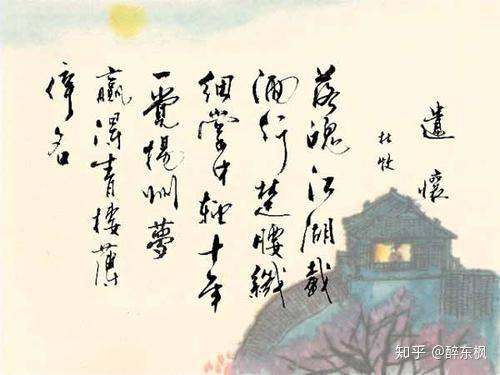 遣懷
杜牧
落魄江湖載
酒行楚腰纖
細掌中輕十年
一覺揚州夢
贏得青樓薄
倖名
知乎 @醉东枫